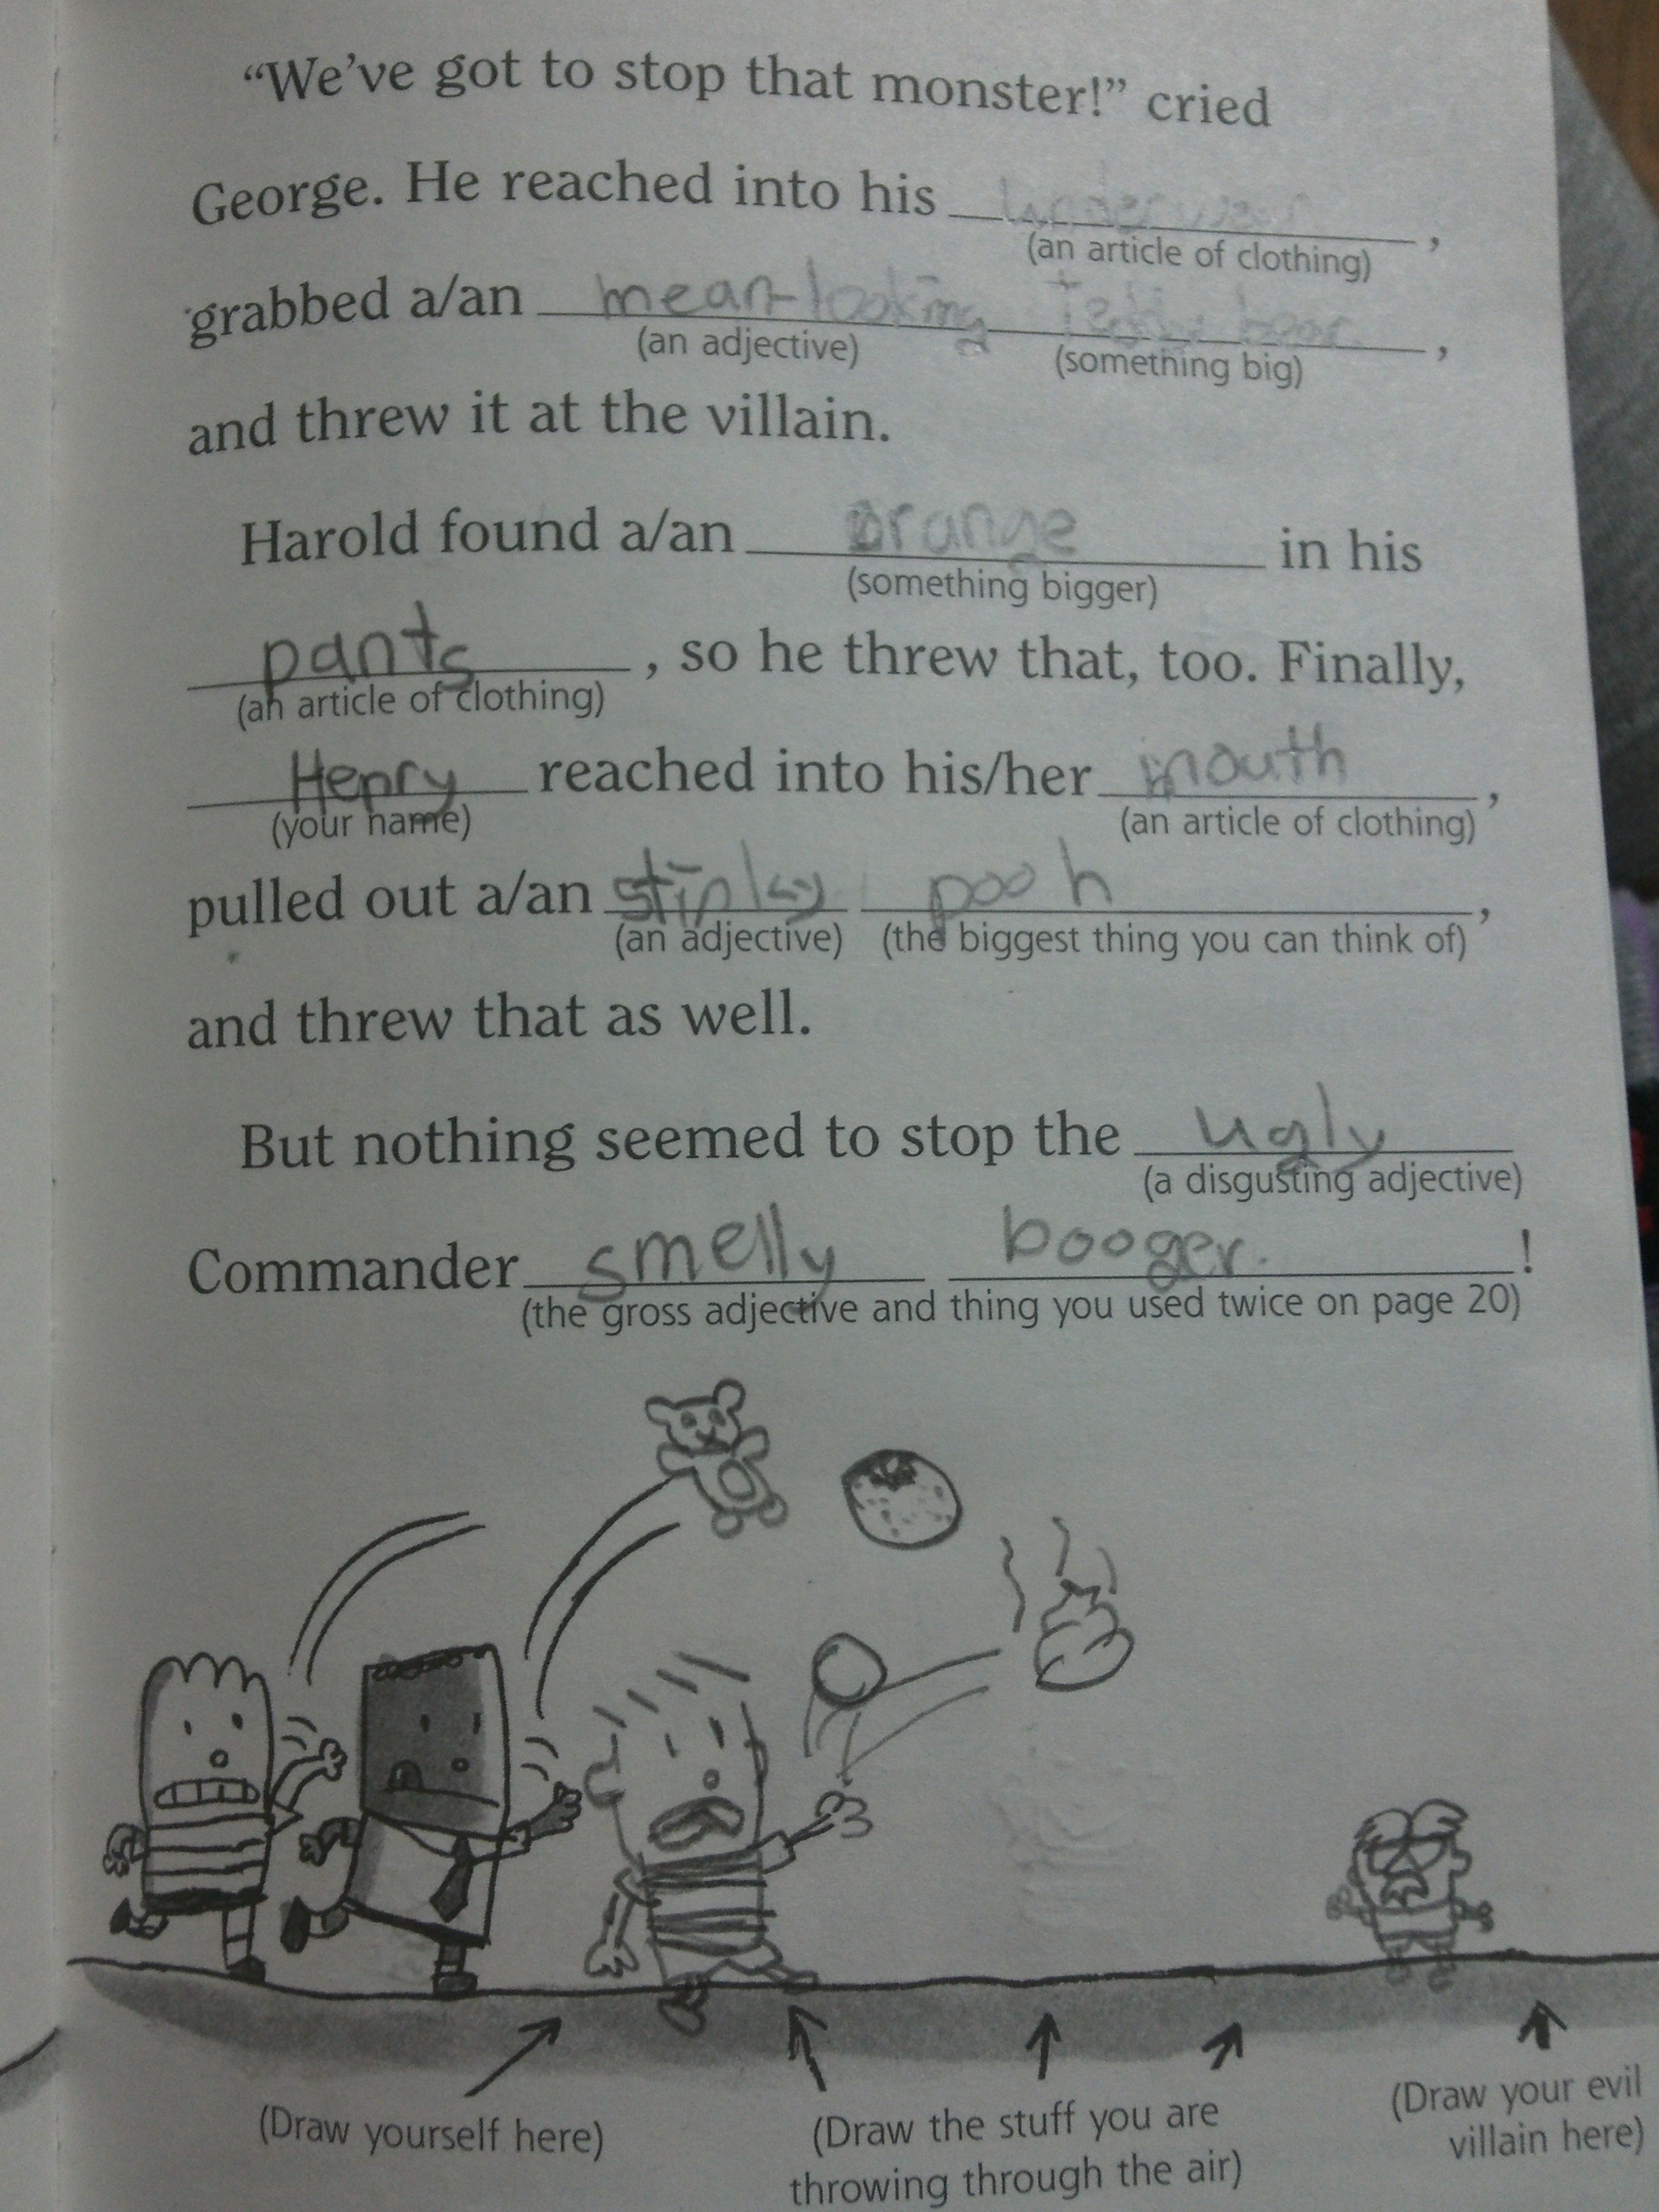 “We’ve got to stop that monster!” cried
George. He reached into his underwear,
(an article of clothing)
grabbed a/an mean-looking Teddy bear.,
(an adjective) (something big)
and threw it at the villain.
Harold found a/an orange in his
(something bigger)
pants, so he threw that, too. Finally,
(an article of clothing)
Henry reached into his/her mouth,
(your name) (an article of clothing)
pulled out a/an stinky pooh,
(an adjective) (the biggest thing you can think of)
and threw that as well.
But nothing seemed to stop the ugly
(a disgusting adjective)
Commander smelly booger.!
(the gross adjective and thing you used twice on page 20)
(Draw yourself here)
(Draw the stuff you are
throwing through the air)
(Draw your evil
villain here)